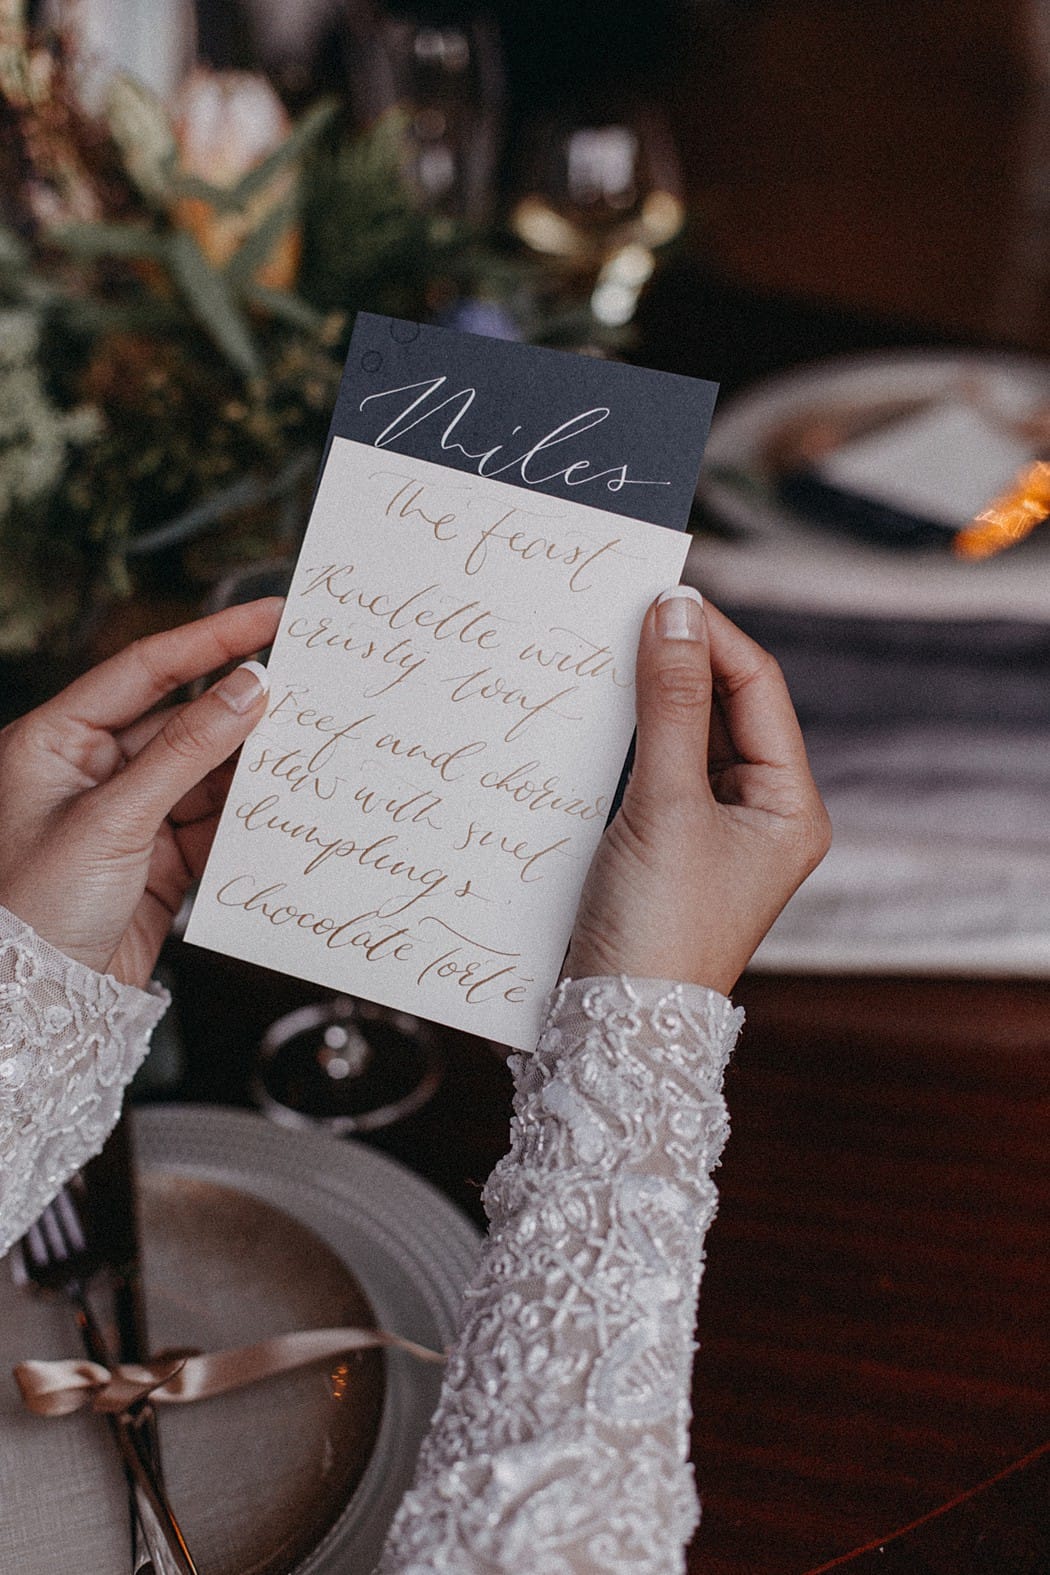 Miles
The Feast
Raclette with
crusty loaf
Beef and chorizo
stew with suet
dumplings.
Chocolate Torté